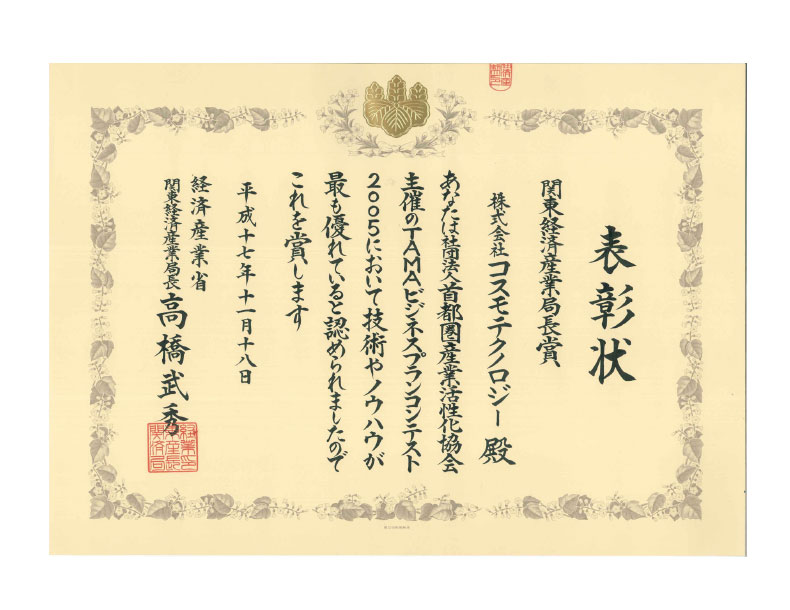 表彰状
関東経済産業局長賞
株式会社コスモテクノロジー 殿
あなたは社団法人首都圏産業活性化協会
主催のTAMAビジネスプランコンテスト
2005において技術やノウハウが
最も優れていると認められましたので
これを賞します
平成十七年十一月十八日
経済産業省
関東経済産業局長 高橋武秀